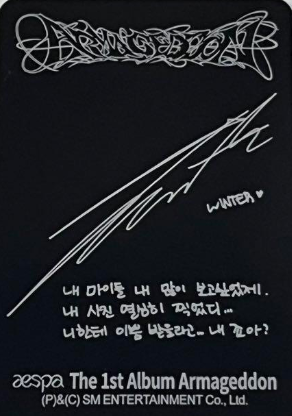 ARMAGEDDON
WINTER ♡
내 마이들 내 많이 보고싶었제.
내 사진 열심히 찍었디...
니한테 이쁨 받을라고.. 내 꼬아?
aespa The 1st Album Armageddon
(P)&(C) SM ENTERTAINMENT Co., Ltd.